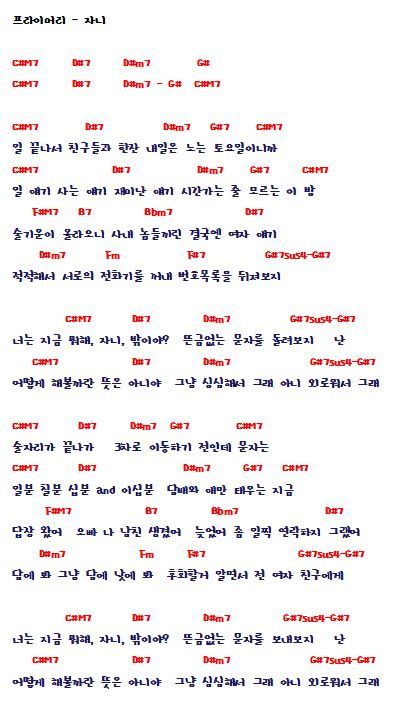 프라이머리 - 자니
C#M7 D#7 D#m7 G#
C#M7 D#7 D#m7 - G# C#M7
C#M7 D#7 D#m7 G#7 C#M7
일 끝나서 친구들과 한잔 내일은 노는 토요일이니까
C#M7 D#7 D#m7 G#7 C#M7
일 얘기 사는 얘기 재미난 얘기 시간가는 줄 모르는 이 밤
F#M7 B7 Bbm7 D#7
술기운이 올라오니 사내 놈들끼린 결국엔 여자 얘기
D#m7 Fm F#7 G#7sus4-G#7
적적해서 서로의 전화기를 꺼내 번호목록을 뒤져보지
C#M7 D#7 D#m7 G#7sus4-G#7
너는 지금 뭐해, 자니, 밖이야? 뜬금없는 문자를 돌려보지 난
C#M7 D#7 D#m7 G#7sus4-G#7
어떻게 해볼까란 뜻은 아니야 그냥 심심해서 그래 아니 외로워서 그래
C#M7 D#7 D#m7 G#7 C#M7
술자리가 끝나가 3차로 이동하기 전인데 문자는
C#M7 D#7 D#m7 G#7 C#M7
일분 칠분 십분 and 이십분 담배와 애만 태우는 지금
F#M7 B7 Bbm7 D#7
답장 왔어 오빠 나 남친 생겼어 늦었어 좀 일찍 연락하지 그랬어
D#m7 Fm F#7 G#7sus4-G#7
담에 봐 그냥 담에 낮에 봐 후회할거 알면서 전 여자 친구에게
C#M7 D#7 D#m7 G#7sus4-G#7
너는 지금 뭐해, 자니, 밖이야? 뜬금없는 문자를 보내보지 난
C#M7 D#7 D#m7 G#7sus4-G#7
어떻게 해볼까란 뜻은 아니야 그냥 심심해서 그래 아니 외로워서 그래